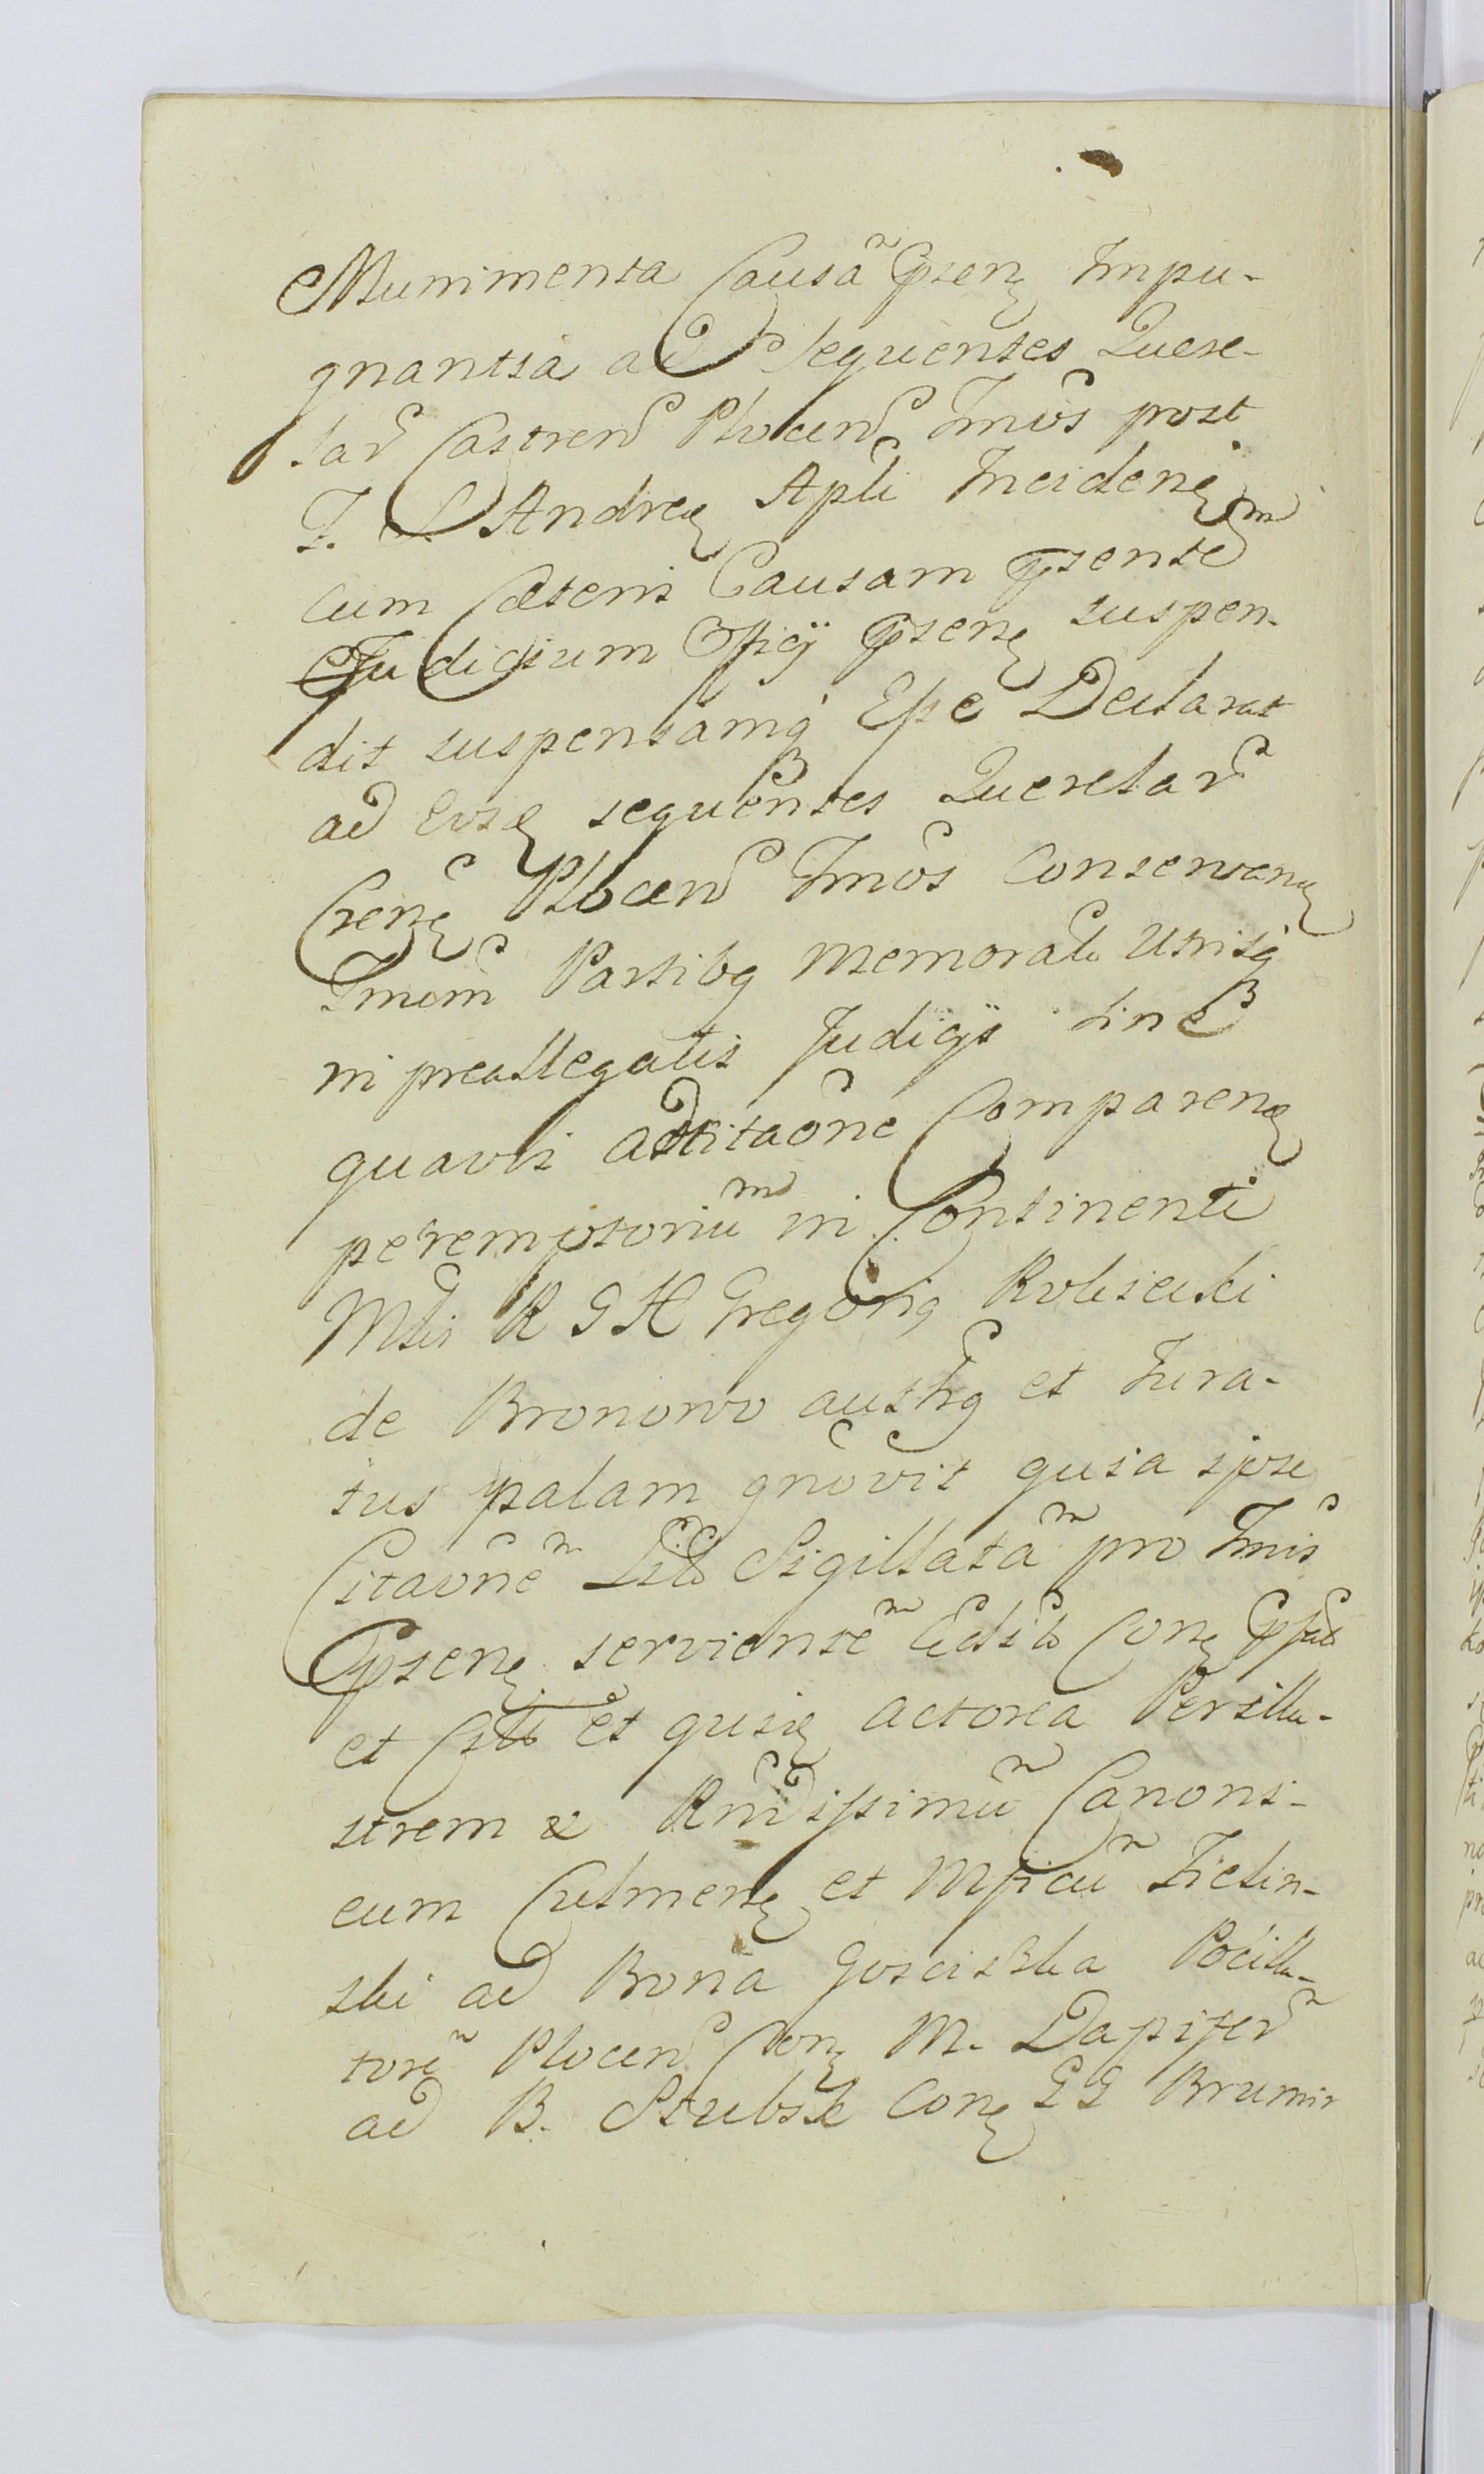 Munimenta Causã pseng Impu-
gnantia ad sequentes Quere-
lar Castren Plocen Tmos post
F. S. Andreę Apli Inciden
cum cæteris Causam psentem
Judicium Officij psen suspen-
dit suspensamq Esse Declarat
ad eosd sequentes Querelar
Cren Plocen Tmos conservan
Tmum Partibq memorat Utrisq
in preallegatis Judicijs sine
quavis adcitaone Comparen
peremptorium in Continenti
Mtis R G H Gregoriq
de Bronowo authq et Jura-
tus palam gnovit quia ipse
Citaonem Sigillatam pro Tmis
psen servientem con
et et quia actorea Perillu-
strem & Rndissimum Canoni-
cum Culmen et Mficum Zielin-
ski ad Bona Gosciska Pocilla-
torem Plocen con M. Dapifer
ad B. con GG